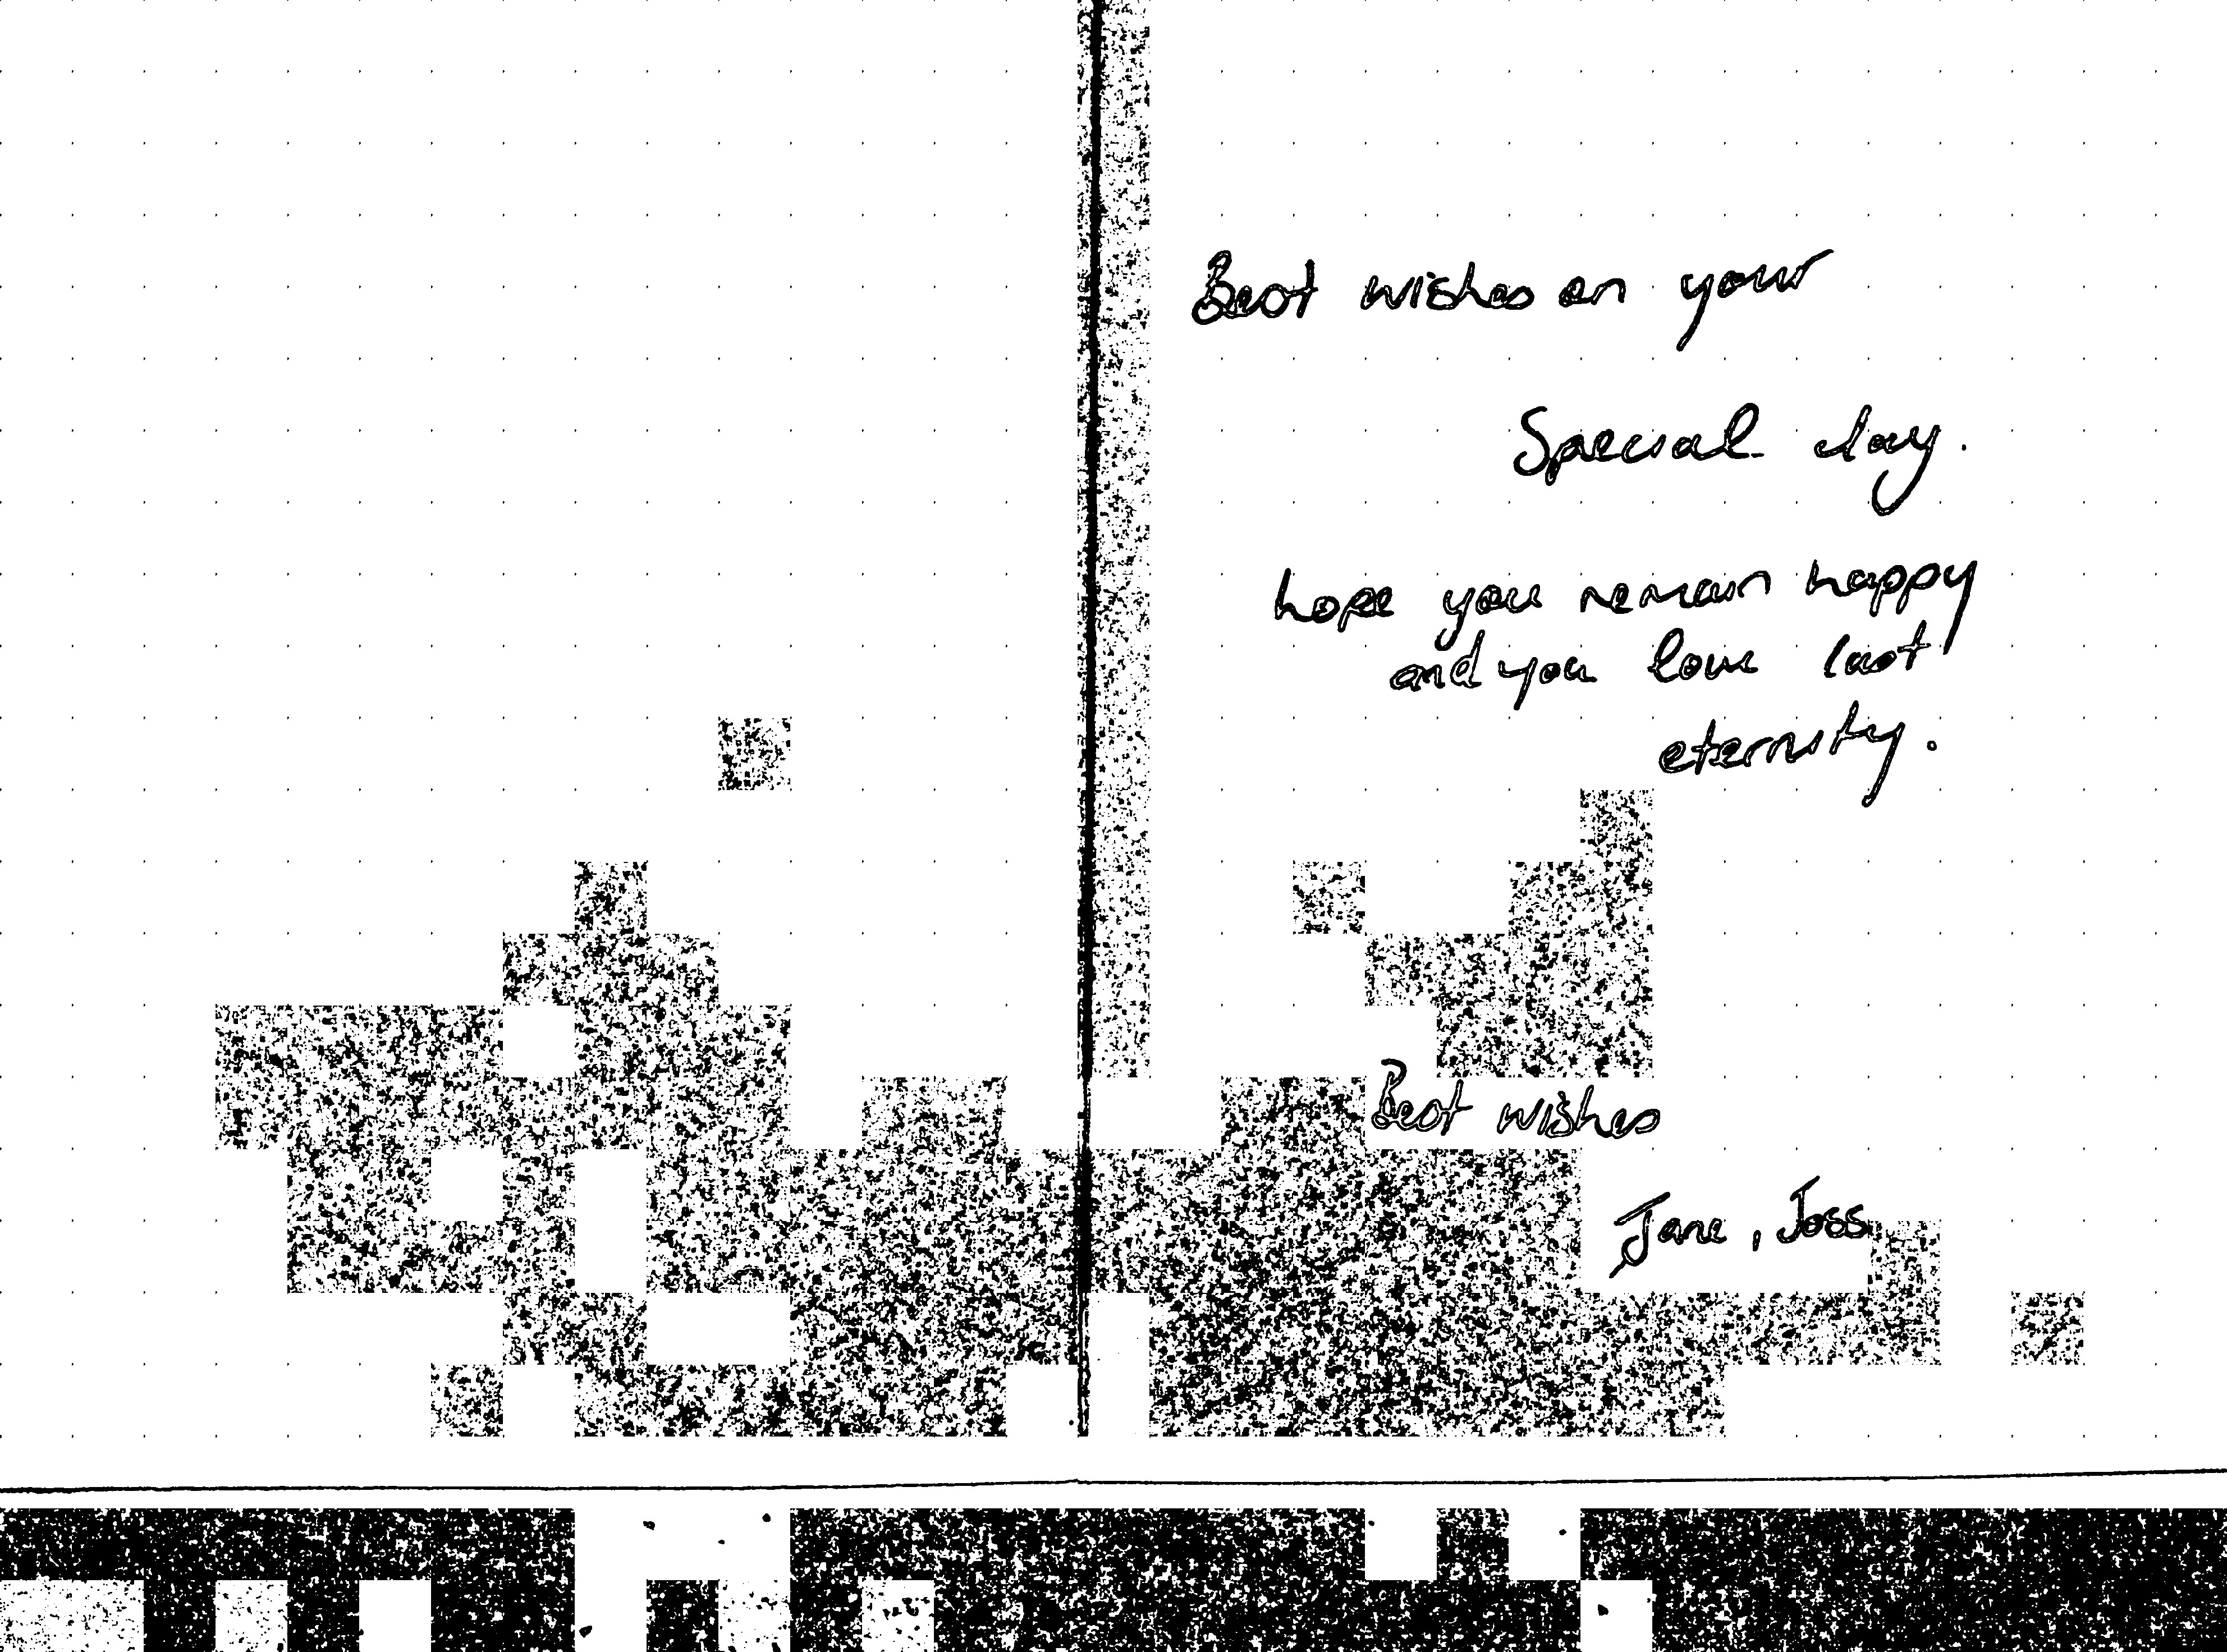 Best wishes on your
Special day.
hope you remain happy
and you love last
eternity.
Best wishes
Jane, Joss